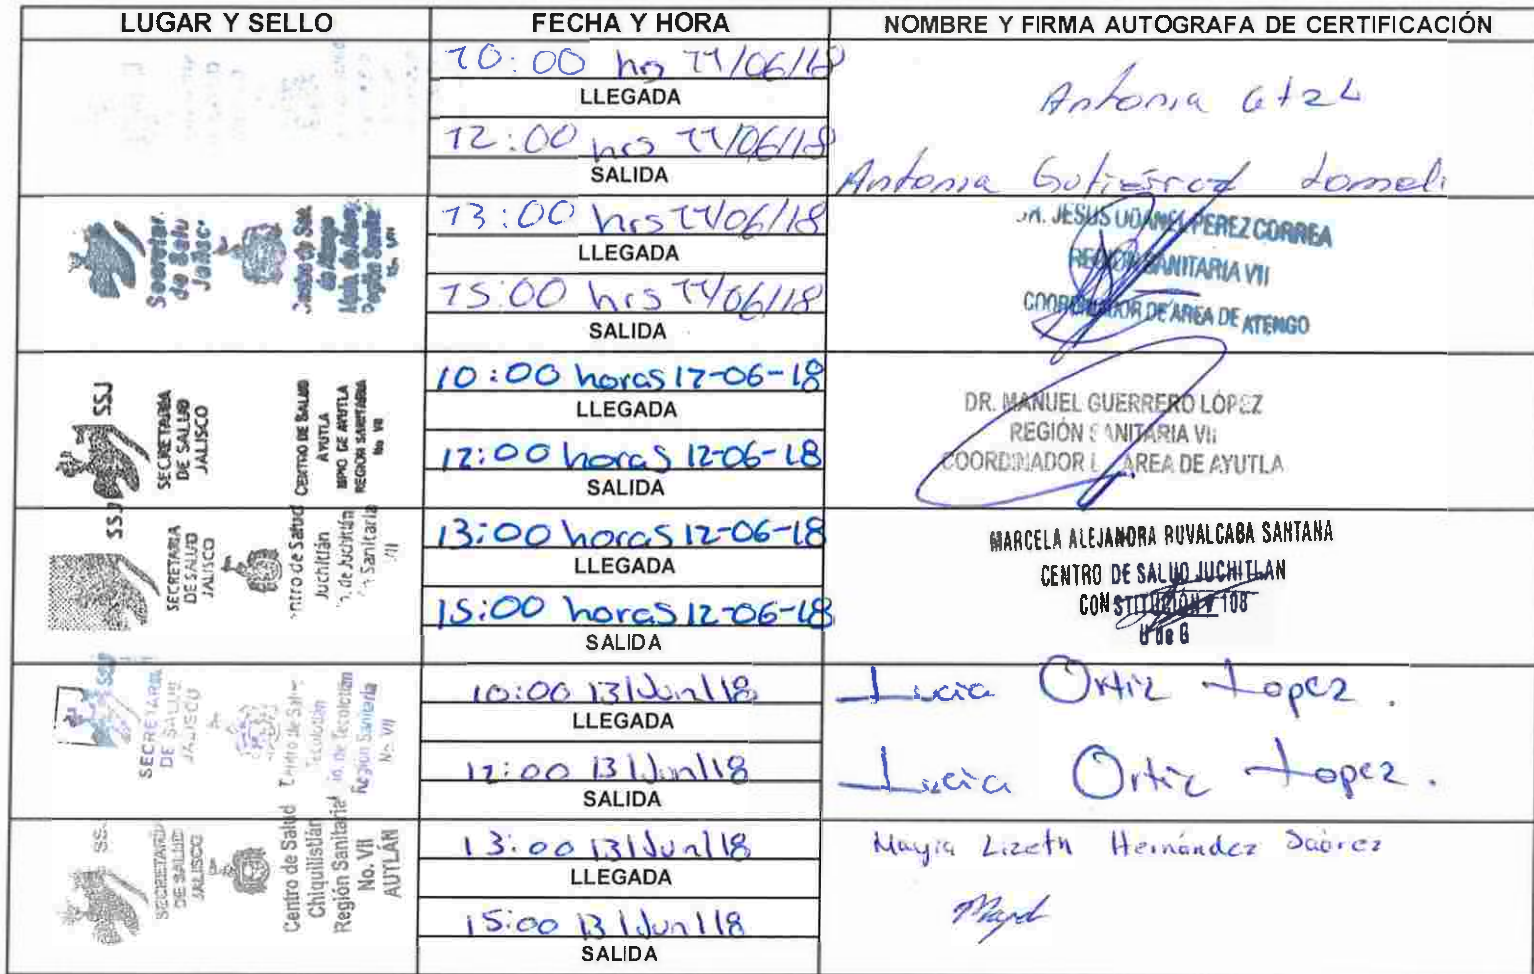 LUGAR Y SELLO
FECHA Y HORA
NOMBRE Y FIRMA AUTOGRAFA DE CERTIFICACIÓN
10:00 hrs 11/06/18
LLEGADA
12:00 hrs 11/06/18
SALIDA
Antonia Gtz L
Antonia Gutiérrez Lomeli
Secretar.
de Salu
Jalisc
de Atengo
13:00 hrs 11/06/18
LLEGADA
15:00 hrs 11/06/18
SALIDA
JESUS UDANEL PEREZ CORREA
REGION SANITARIA VII
COORDINADOR DE AREA DE ATENGO
SSJ
SECRETARIA
DE SALUD
JALISCO
CENTRO DE SALUD
AYUTLA
MPIO DE AYUTLA
REGION SANITARIA
No VII
10:00 horas 12-06-18
LLEGADA
12:00 horas 12-06-18
SALIDA
DR. MANUEL GUERRERO LÓPEZ
REGIÓN SANITARIA VII
COORDINADOR AREA DE AYUTLA
SSJ
SECRETARIA
DE SALUD
JALISCO
ntro de Salud
Juchitlán
de Juchitlán
n Sanitaria
VII
13:00 horas 12-06-18
LLEGADA
15:00 horas 12-06-18
SALIDA
MARCELA ALEJANDRA RUVALCABA SANTANA
CENTRO DE SALUD JUCHITLAN
CONSTITUCION # 108
U de G
SECRETARIA
DE SALUD
JALISCO
Centro de Salud
Tecolotlán
de Tecolotlán
Región Sanitaria
No VII
10:00 13/Jun/18
LLEGADA
12:00 13/Jun/18
SALIDA
Lucia Ortiz Lopez.
Lucia Ortiz Lopez.
SS
SECRETARIA
DE SALUD
JALISCO
Centro de Salud
Chiquilistlán
Región Sanitaria
No. VII
AUTLÁN
13:00 13/Jun/18
LLEGADA
15:00 13/Jun/18
SALIDA
Mayra Lizeth Hernández Suárez